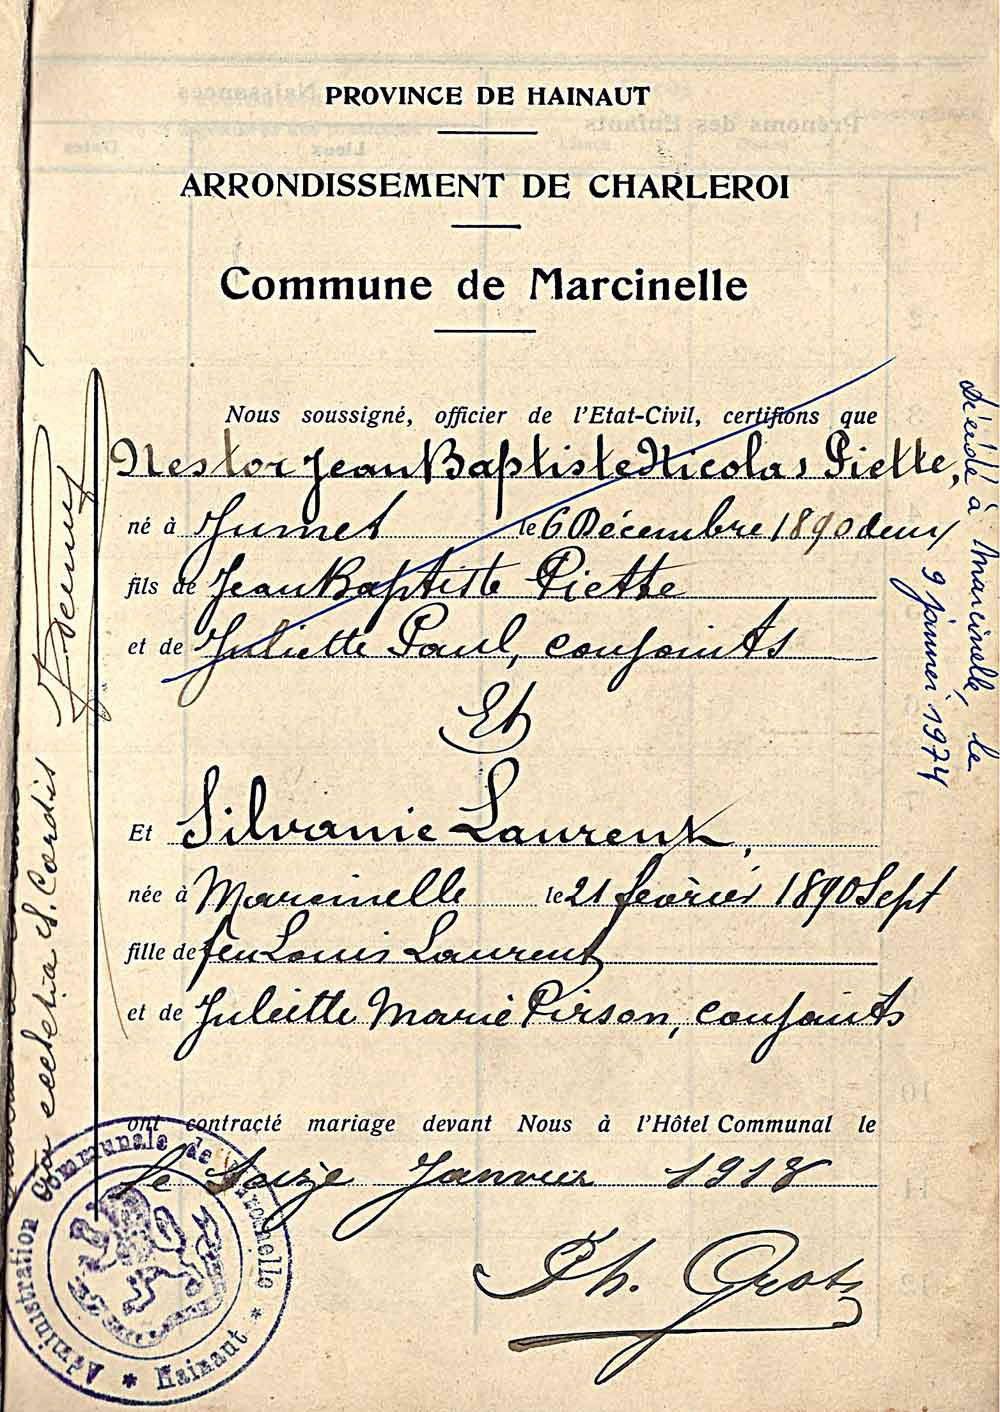 PROVINCE DE HAINAUT
ARRONDISSEMENT DE CHARLEROI
Commune de Marcinelle
Nous soussigné, officier de l'Etat-Civil, certifions que
Nestor Jean Baptiste Nicolas Piette,
né à Jumet le 6 Décembre 1890 deux
fils de Jean Baptiste Piette
et de Juliette Paul, conjoints
Et
Et Silvanie Laurent,
née à Marcinelle le 21 février 1890 Sept
fille de feu Louis Laurent
et de Juliette Marie Pirson, conjoints
ont contracté mariage devant Nous à l'Hôtel Communal le
le Seize Janvier 1918
Ph.
Décédé à Marcinelle, le
9 janvier 1974
S. Cordis
Administration Communale de Marcinelle
* Hainaut *
Naissances
Prénoms des Enfants
Lieux
Dates